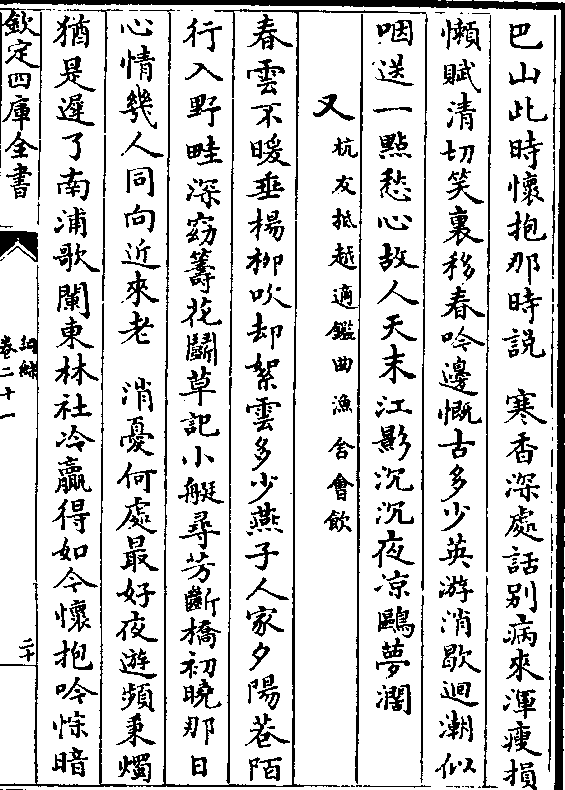 巴山此時懷抱那時説　寒香深處話别病來渾瘦損
懶賦清切笑裏移春吟邊慨古多少英游消歇迴潮似
咽送一點愁心故人天末江影沉沉夜凉鷗夢濶
又杭友抵越適鑑曲漁舍會飲
春雲不暖垂楊柳吹却絮雲多少燕子人家夕陽巷陌
行入野畦深窈籌花鬭草記小艇尋芳斷橋初曉那日
心情幾人同向近來老　消憂何處最好夜遊頻秉燭
猶是遲了南浦歌闌東林社冷贏得如今懷抱吟悰暗
欽定四庫全書
詞綜
卷二十一
二十